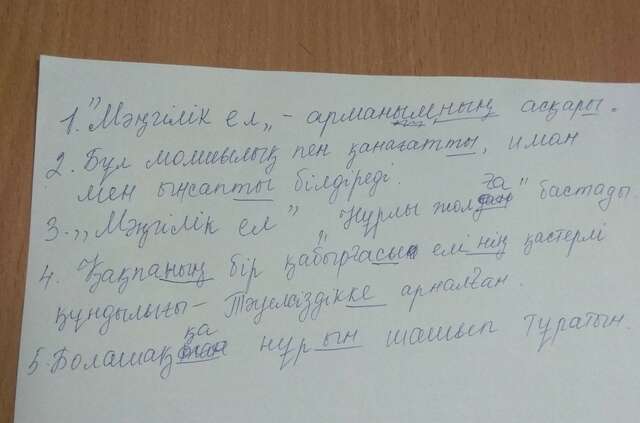 1. "Мәңгілік ел„ - арманымның асқары.
2. Бұл момшылық пен қанағатты, иман
мен ынсапты білдіреді.
3. „Мәңгілік ел" „Нұрлы жолға" бастады.
4. Қақпаның бір қабырғасы елінің қастерлі
құндылығы - Тәуелсіздікке арналған.
5. Болашаққа нұрын шашып тұратын.